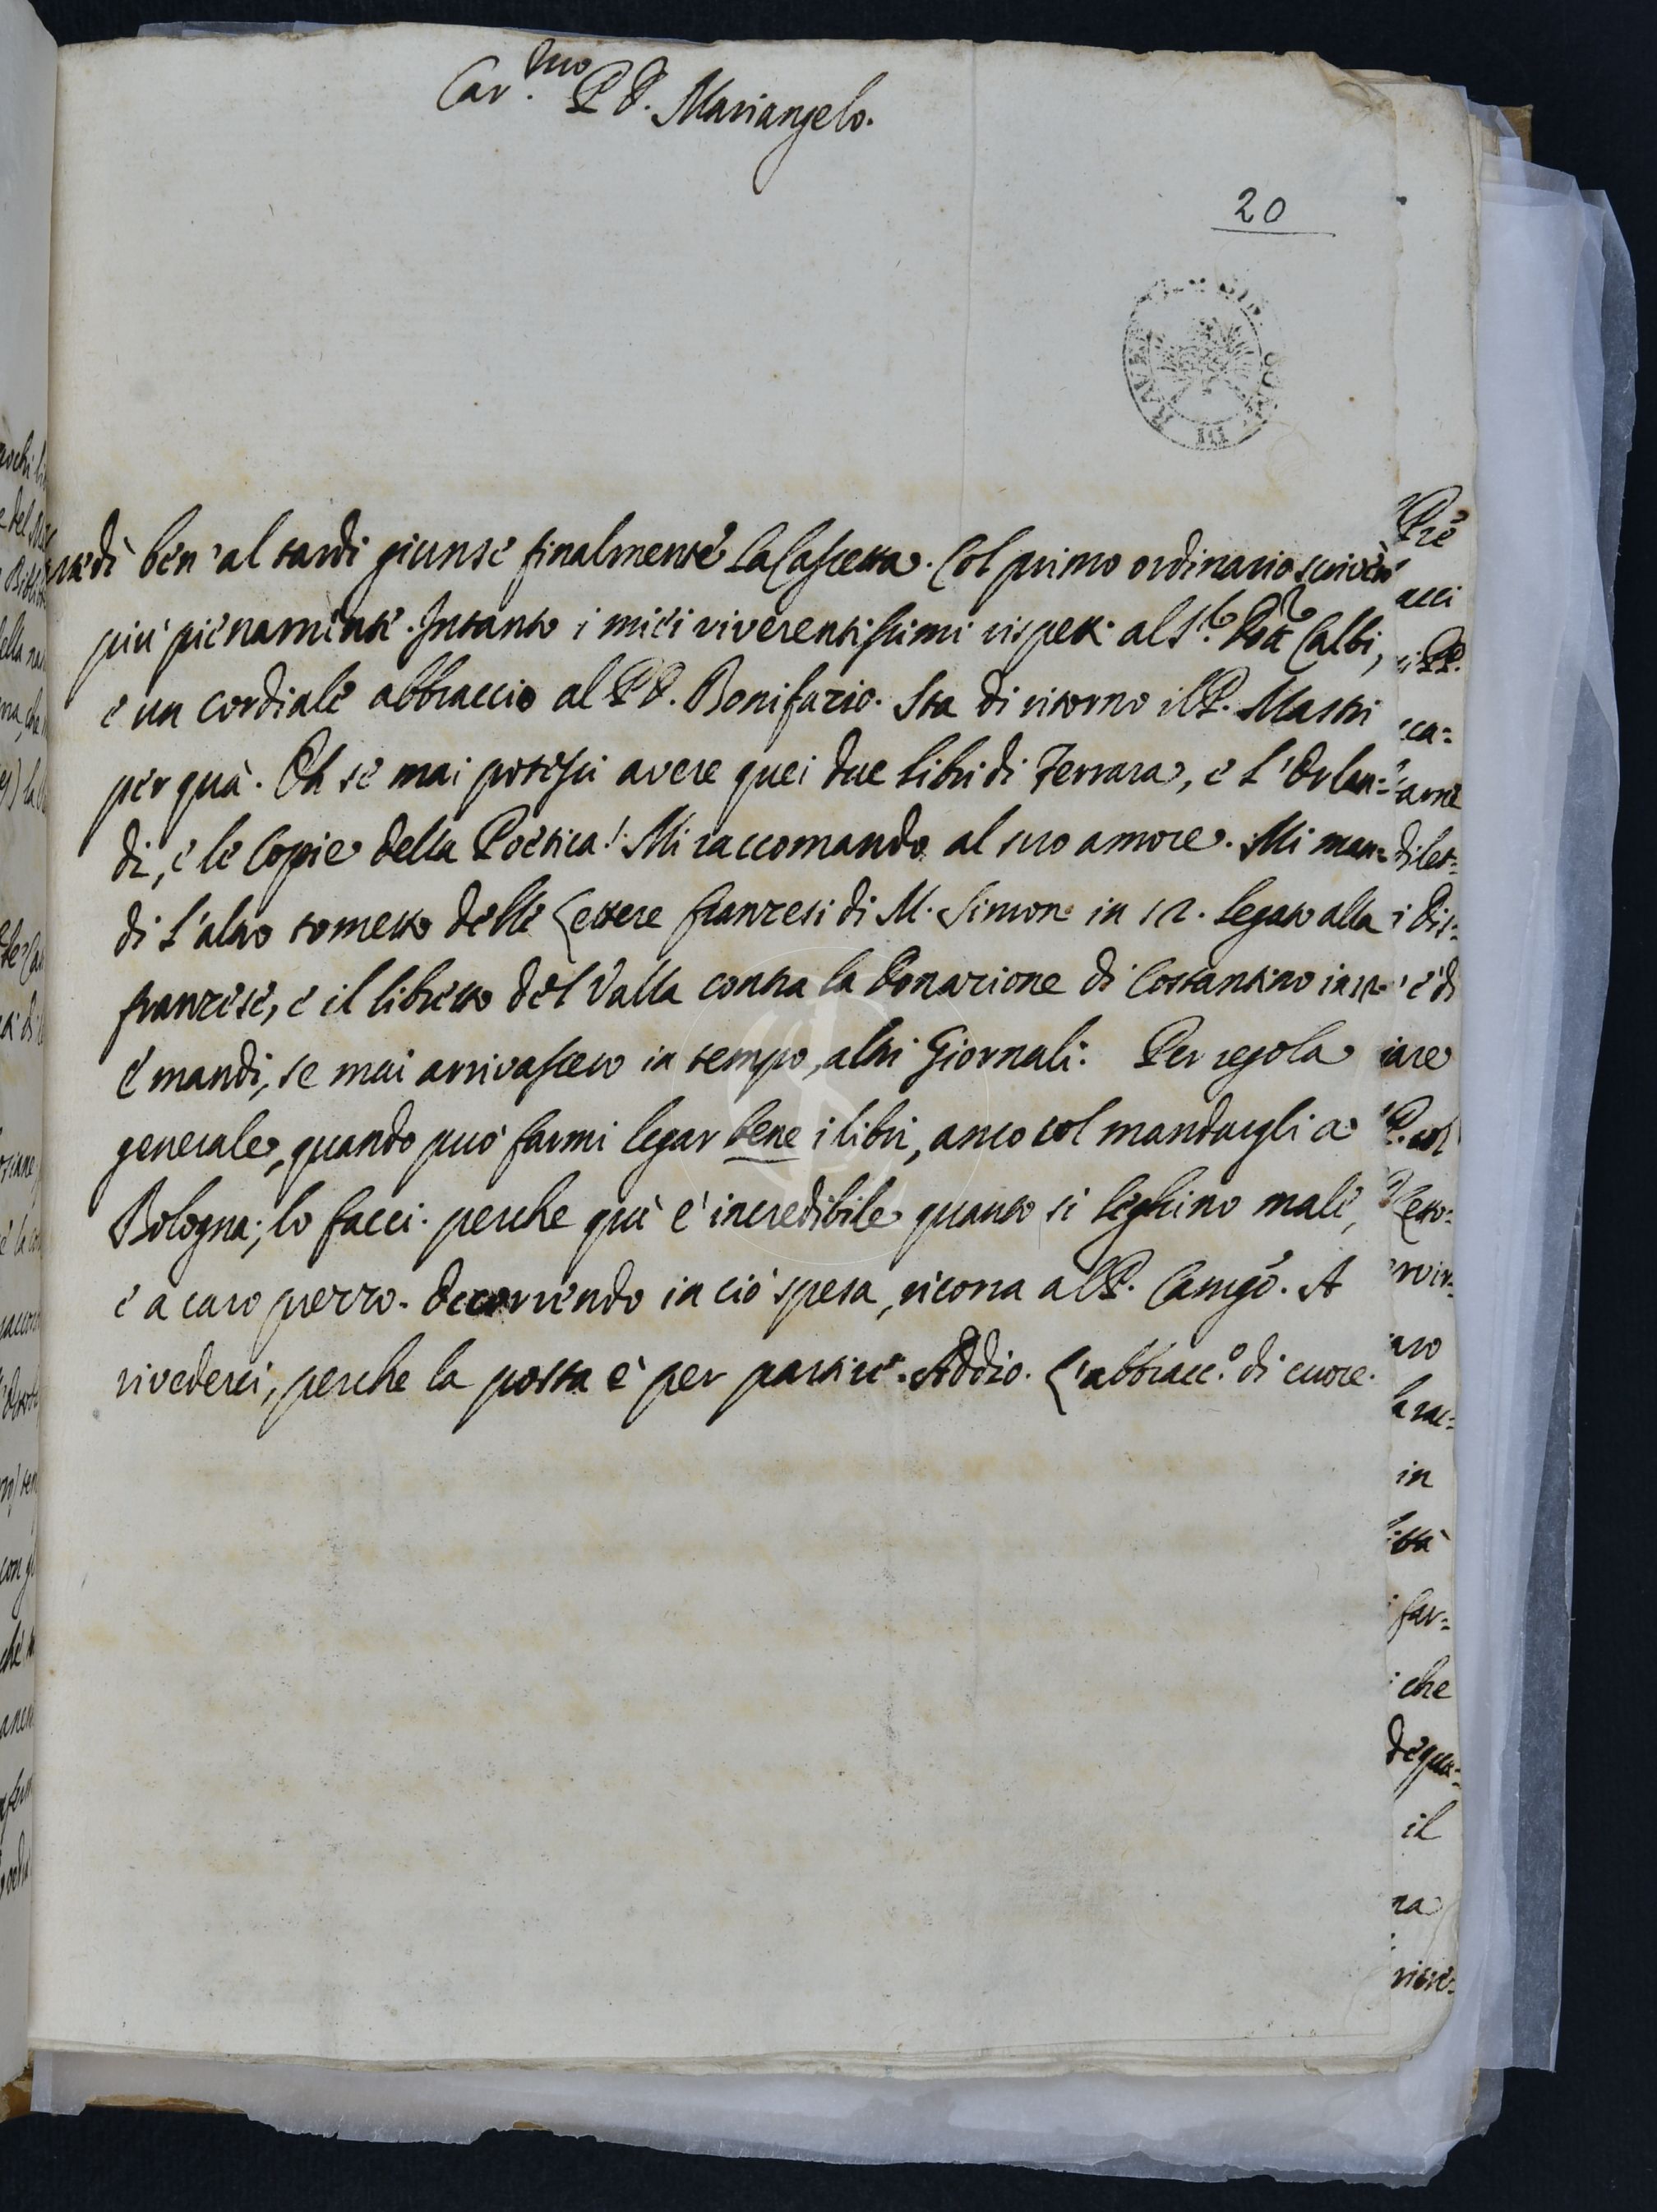 Car.mo P D. Mariangelo.
20
DI RAVENNA
ben' al tardi giunse finalmente la Cassetta. Col primo ordinario scriverò
più pienamente. Intanto i miei riverentissimi rispetti al Sr. Dott. Calbi,
e un cordiale abbraccio al P D. Bonifazio. Sta di ritorno il P. Mastri
per quà. Oh se mai potessi avere quei due libri di Ferrara, e l'Orlan=
di, e le Copie della Poetica! Mi raccomando al suo amore. Mi man=
di l'altro tometto delle Lettere franzesi di M. Simon in 12. legato alla
franzese, e il libretto del Valla contra la Donazione di Costantino in 12.
e mandi, se mai arrivassero in tempo, altri Giornali. Per regola
generale, quando può farmi legar bene i libri, anco col mandargli a
Bologna, lo facci. perche quì e' incredibile quanto si leghino male,
e a caro prezzo. Occorrendo in ciò spesa, ricorra al P. Camgo. A
rivederci, perche la posta è per partire. Addio. L'abbracc.o di cuore.